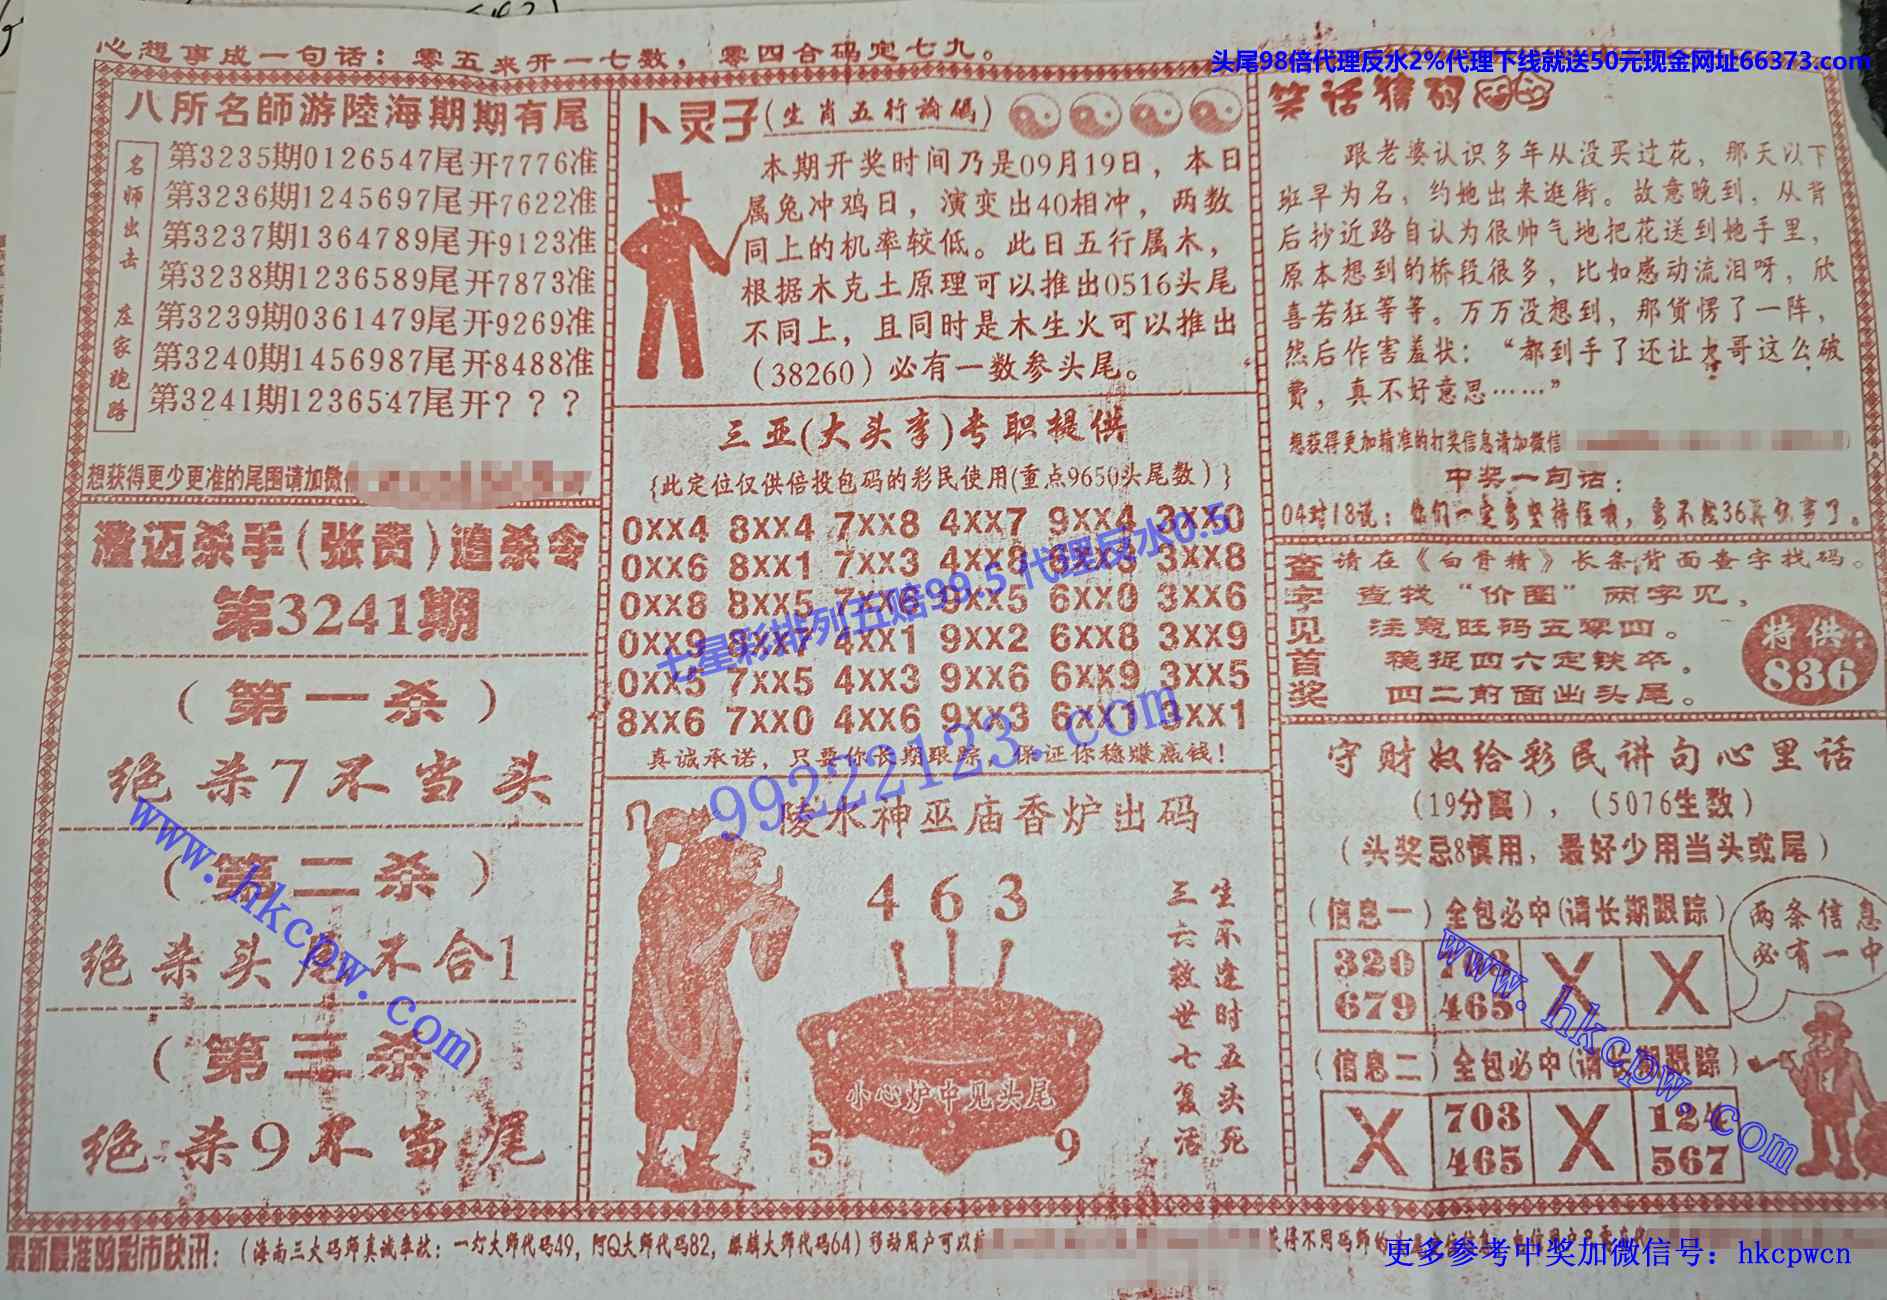 心想事成一句话：零五来开一七数，零四合码定七九。
头尾98倍代理反水2%代理下线就送50元现金网址66373.com
八所名師游陸海期期有尾
名师出击 庄家跑路
第3235期0126547尾开7776准
第3236期1245697尾开7622准
第3237期1364789尾开9123准
第3238期1236589尾开7873准
第3239期0361479尾开9269准
第3240期1456987尾开8488准
第3241期1236547尾开？？？
想获得更少更准的尾围请加微
澄迈杀手(张贵)追杀令
第3241期
（第一杀）
绝杀7不当头
（第二杀）
绝杀头尾不合1
（第三杀）
绝杀9不当尾
卜灵子(生肖五行論碼)
本期开奖时间乃是09月19日，本日
属兔冲鸡日，演变出40相冲，两数
同上的机率较低。此日五行属木，
根据木克土原理可以推出0516头尾
不同上，且同时是木生火可以推出
（38260）必有一数参头尾。
三亚(大头李)专职提供
{此定位仅供倍投包码的彩民使用(重点9650头尾数)}
0XX4 8XX4 7XX8 4XX7 9XX4 3XX0
0XX6 8XX1 7XX3 4XX8 6XX3 3XX8
0XX8 8XX5 7XX6 9XX5 6XX0 3XX6
0XX9 8XX7 4XX1 9XX2 6XX8 3XX9
0XX5 7XX5 4XX3 9XX6 6XX9 3XX5
8XX6 7XX0 4XX6 9XX3 6XX1 3XX1
真诚承诺，只要你长期跟踪，保证你稳赚赢钱！
七星彩排列五赔99.5 代理反水0.5
99222123.com
陵水神巫庙香炉出码
463
生不逢时五头死
三六救世七复活
小心炉中见头尾
5 9
笑话猜码
跟老婆认识多年从没买过花，那天以下
班早为名，约她出来逛街。故意晚到，从背
后抄近路自认为很帅气地把花送到她手里，
原本想到的桥段很多，比如感动流泪呀，欣
喜若狂等等。万万没想到，那货愣了一阵，
然后作害羞状：“都到手了还让大哥这么破
费，真不好意思……”
想获得更加精准的打奖信息请加微信
中奖一句话：
04对18说：你们一定要坚持住哦，要不然36真伤事了。
查字见首奖
请在《白骨精》长条背面查字找码。
查找“价围”两字见，
注意旺码五零四。
稳捉四六定铁卒。
四二前面出头尾。
特供：
836
守财奴给彩民讲句心里话
（19分离），（5076生数）
（头奖忌8慎用，最好少用当头或尾）
（信息一）全包必中(请长期跟踪)
320 703 X X
679 465
两条信息
必有一中
（信息二）全包必中(请长期跟踪)
X 703 X 124
465 567
www.hkcpw.com
www.hkcpw.com
最新最准的彩市快讯：（海南三大码师真诚奉献：一灯大师代码49，阿Q大师代码82，麒麟大师代码64）移动用户可以
获得不同码师的
更多参考中奖加微信号：hkcpwcn